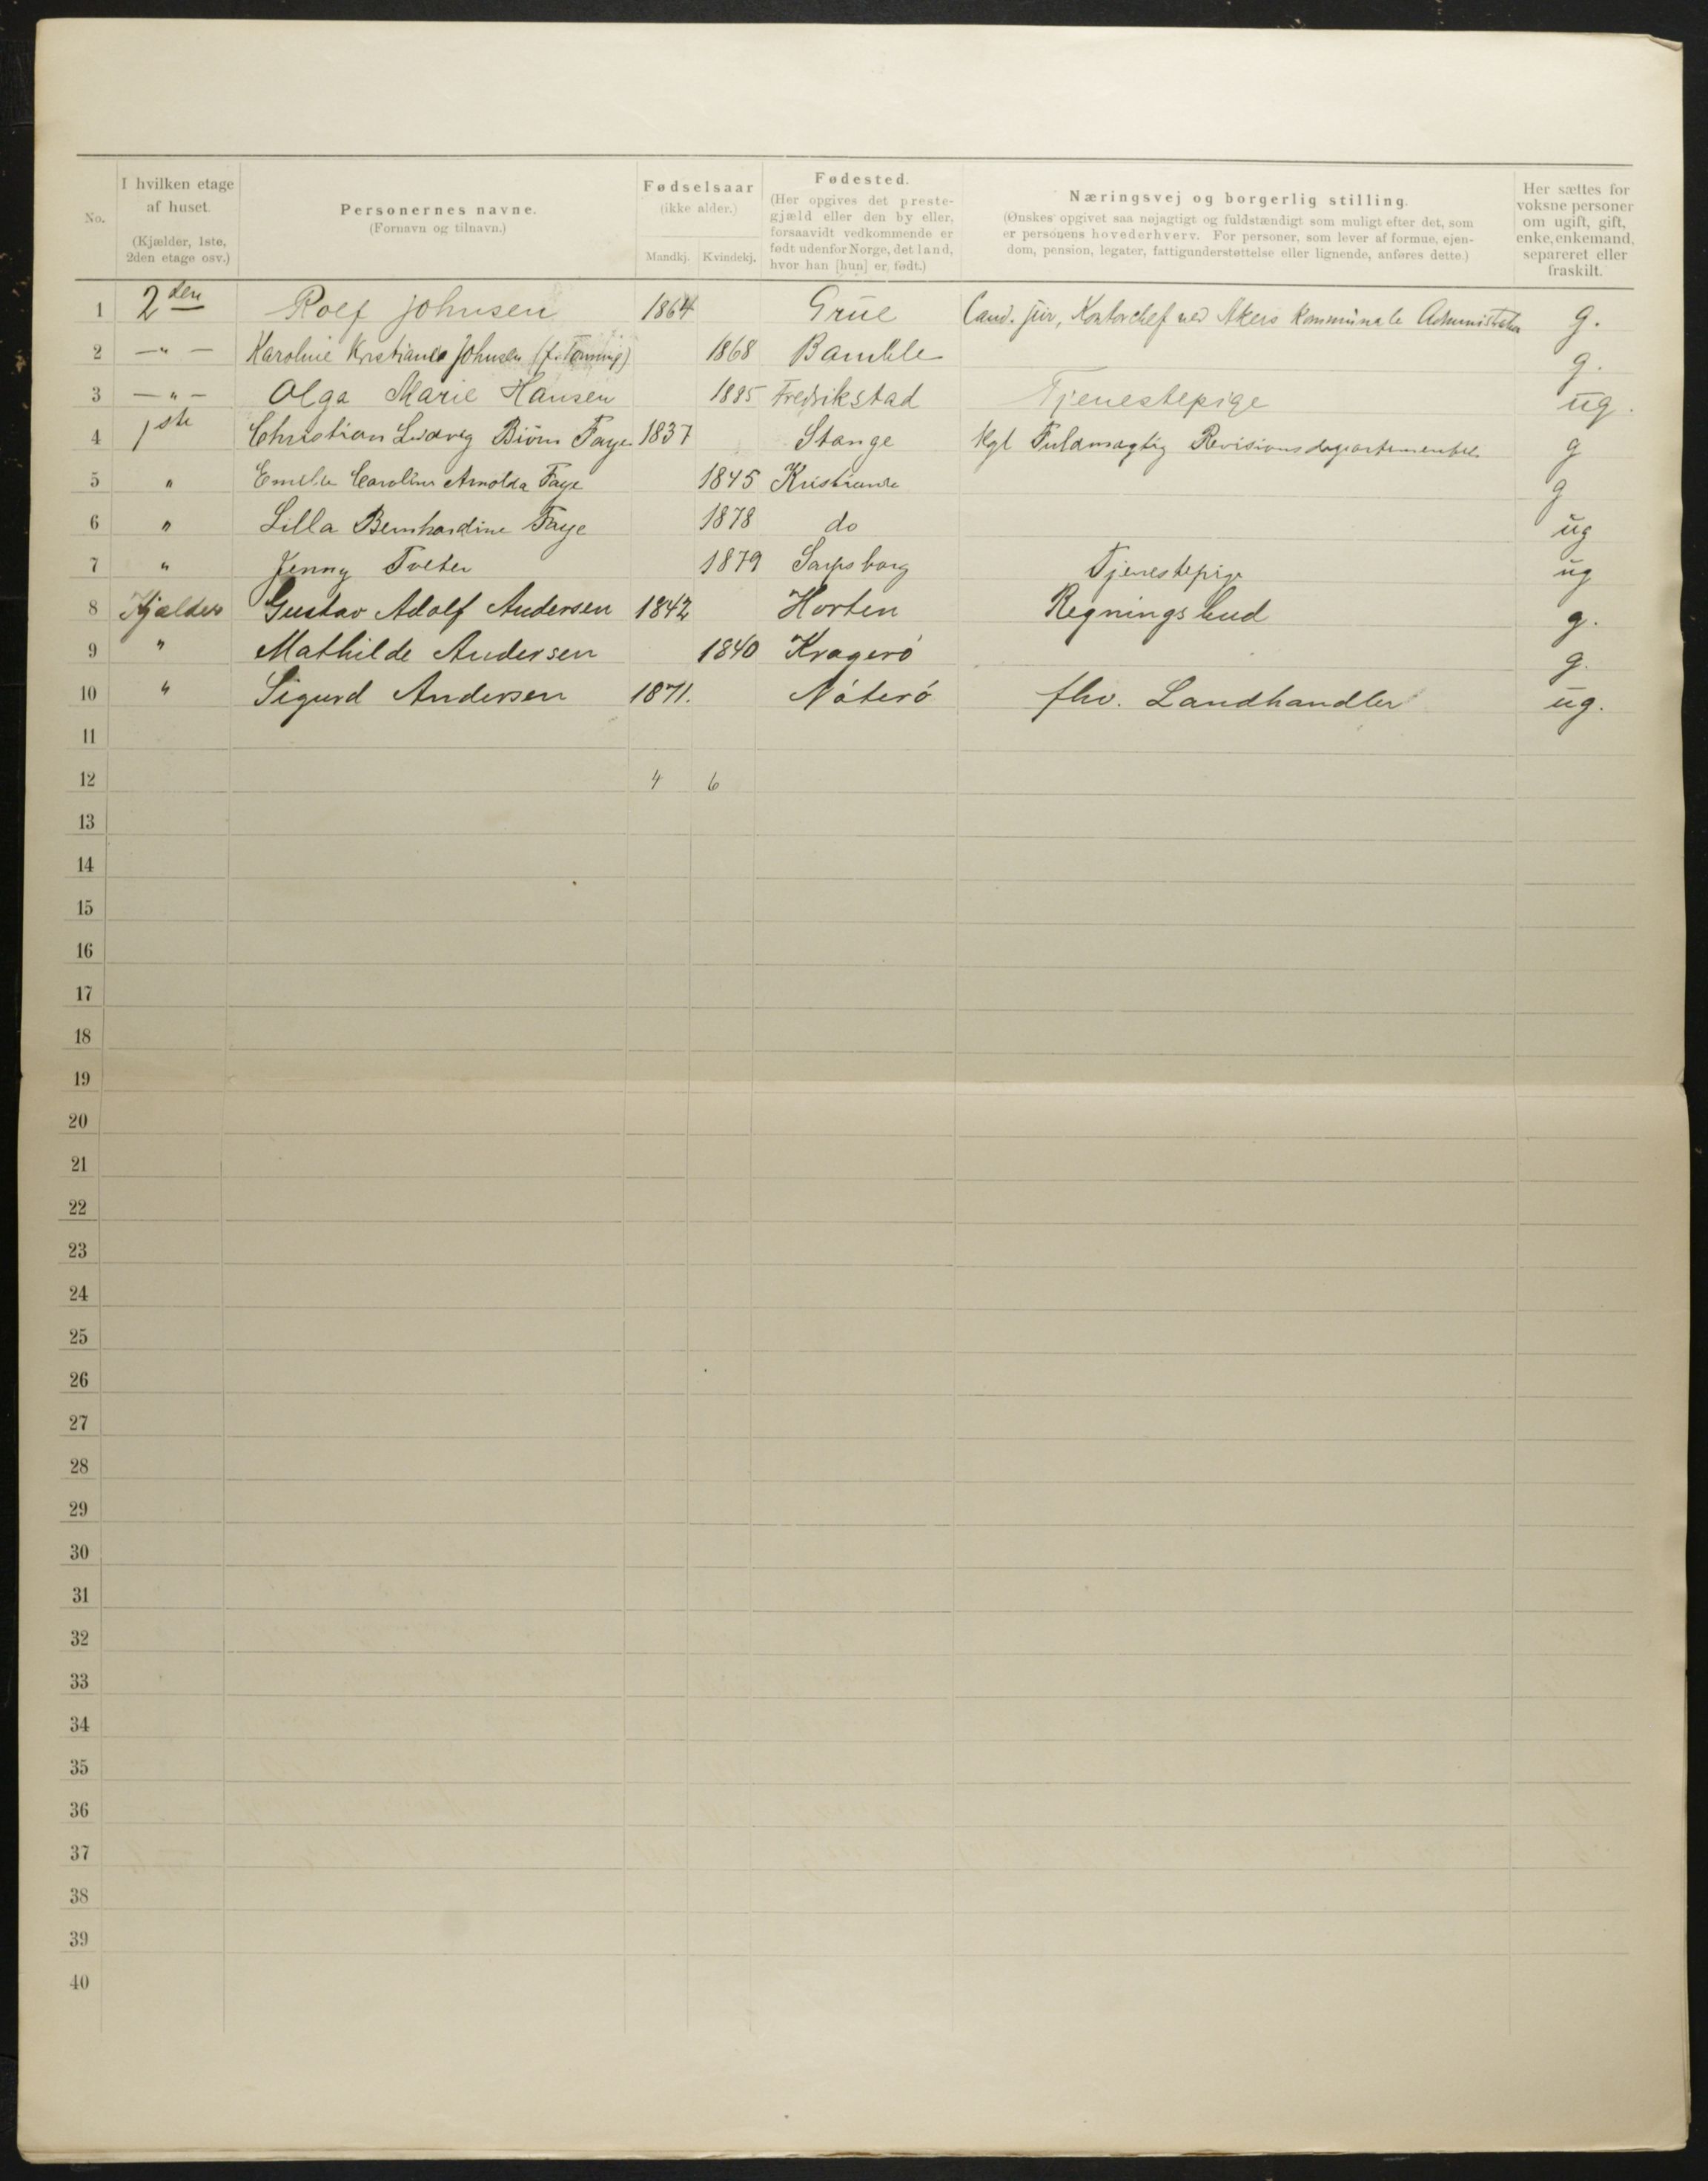 No.
I hvilken etage
af huset.
(Kjælder, 1ste,
2den etage osv.)
Personernes navne.
(Fornavn og tilnavn.)
Fødselsaar
(ikke alder.)
Mandkj. Kvindekj.
Fødested.
(Her opgives det preste-
gjæld eller den by eller,
forsaavidt vedkommende er
født udenfor Norge, det land,
hvor han [hun] er født.)
Næringsvej og borgerlig stilling.
(Ønskes opgivet saa nøjagtigt og fuldstændigt som muligt efter det, som
er personens hovederhverv. For personer, som lever af formue, ejen-
dom, pension, legater, fattigunderstøttelse eller lignende, anføres dette.)
Her sættes for
voksne personer
om ugift, gift,
enke, enkemand,
separeret eller
fraskilt.
1 2den Rolf Johnsen 1864 Grue Cand. jur, Kontorchef ved Akers kommunale Administration g.
2 —"— Karoline Kristiane Johnsen (f. Tønning) 1868 Bamble g.
3 —"— Olga Marie Hansen 1885 Fredrikstad Tjenestepige ug.
4 1ste Christian Ludvig Biørn Faye 1837 Stange Kgl Fuldmægtig Revisionsdepartementet g
5 " Emilie Caroline Arnolda Faye 1845 Kristiania g
6 " Lilla Bernhardine Faye 1878 do ug
7 " Jenny Tveter 1879 Sarpsborg Tjenestepige ug
8 Kjælder Gustav Adolf Andersen 1842 Horten Regningsbud g.
9 " Mathilde Andersen 1840 Kragerø g.
10 " Sigurd Andersen 1871. Nøterø fhv. Landhandler ug.
11
12 4 6
13
14
15
16
17
18
19
20
21
22
23
24
25
26
27
28
29
30
31
32
33
34
35
36
37
38
39
40